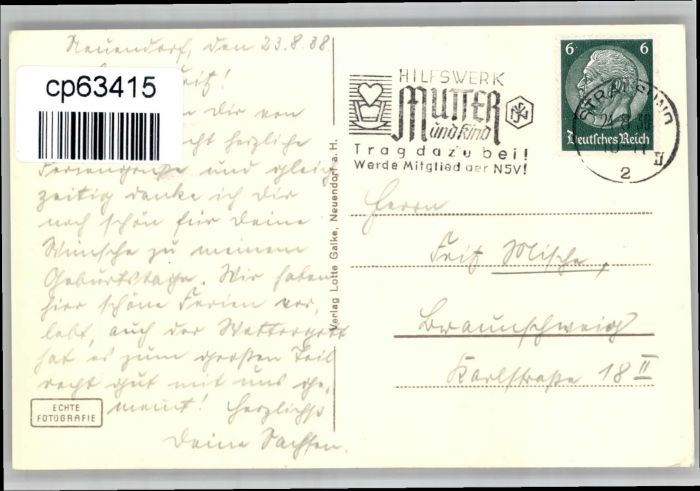 Neuendorf, den 23.8.38
cp63415
dir von
herzliche
Feriengrüße und gleich
zeitig danke ich dir
noch schön für deine
Wünsche zu meinem
Geburtstage. Wir haben
hier schöne Ferien ver,
lebt, auch der Wettergott
hat es zum großen Teil
recht gut mit uns ge,
meint! Herzlichst
Deine Sachsen.
ECHTE
FOTOGRAFIE
Verlag Lotte Galke, Neuendorf a. H.
HILFSWERK
MUTTER
und Kind
Trag dazu bei!
Werde Mitglied der NSV!
6 6
Deutsches Reich
STRALSUND
2
Herrn
Fritz Mische,
Braunschweig
Karlstraße 18 II